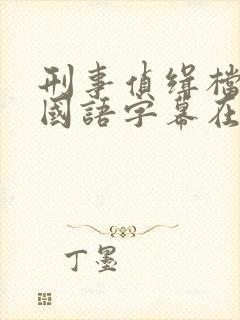 刑事偵缉檔
國語字幕在
丁墨